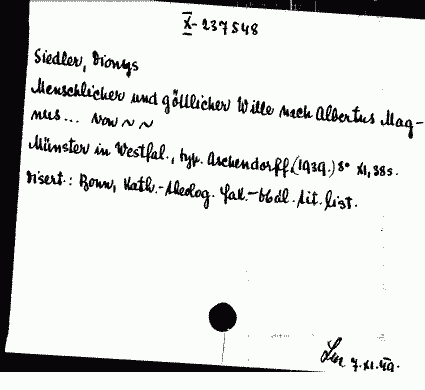 X-237548
Siedler, Dionys
Menschlicher und göttlicher Wille nach Albertus Mag-
nus... von ~ ~
Münster in Westfal., typ. Aschendorff, (1939.) 8° XI, 38 s.
Disert.: Bonn, Kath.-theolog. fak.- bbdl. Lit. list.
7.XI.49.